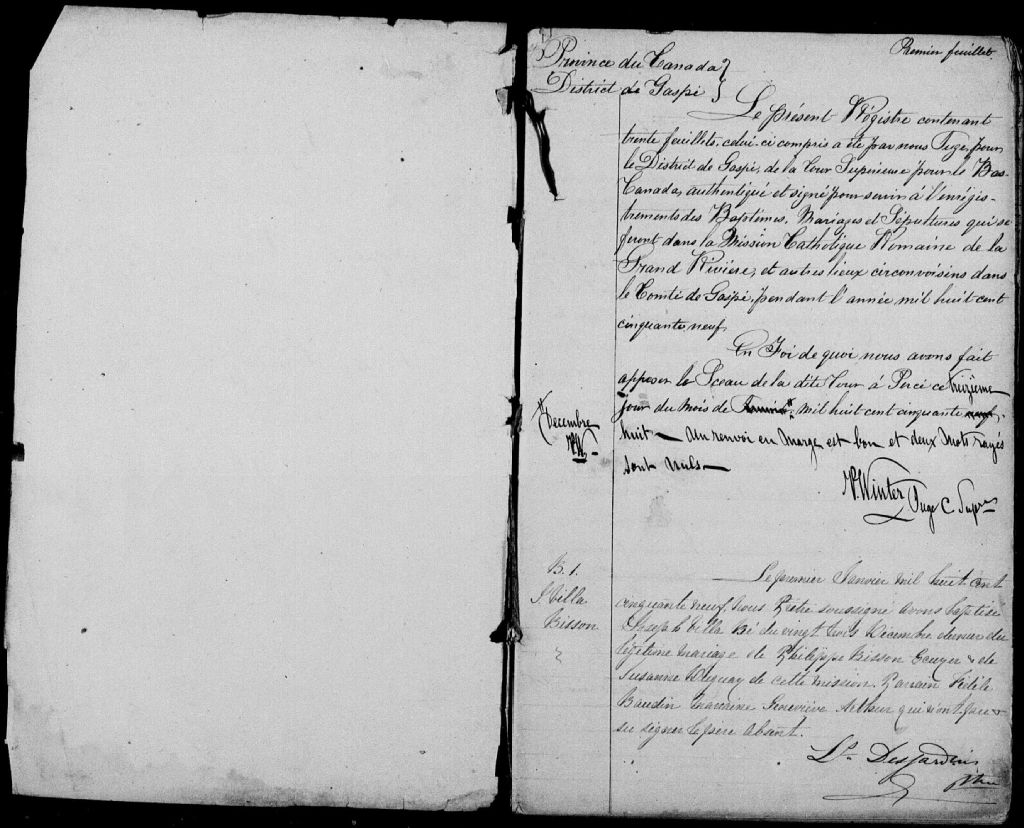 Premier feuillet
Province du Canada }
District de Gaspé }
Le présent Régistre contenant
trente feuillets, celui-ci compris a été par nous Juge, pour
le District de Gaspé, de la Cour Supérieure pour le Bas-
Canada, authentiqué et signé pour servir à l'enrégis-
trements des Baptêmes, Mariages et Sépultures qui se
feront dans la Mission Catholique Romaine de la
Grand Rivière, et autres lieux circonvoisins dans
le Comté de Gaspé, pendant l'année mil huit cent
cinquante neuf.
En Foi de quoi nous avons fait
apposer le Sceau de la dite Cour à Percé ce treizième
jour du mois de mil huit cent cinquante neuf,
Decembre
PW
huit — Un renvoi en Marge est bon et deux Mots rayés
sont nuls —
P. Winter
Juge C. Supre
B. 1.
J. Villa
Bisson
Le premier Janvier mil huit cent
cinquante neuf, Nous Prêtre soussigné avons baptisé
Joseph Villa né du vingt trois Décembre dernier du
légitime mariage de Philippe Bisson Ecuyer & de
Susanne de cette mission. Parrain Fidèle
Baudin Marraine Geneviève Arthur qui n'ont pas
su signer le père absent.
Ls. DesJardins
Ptre